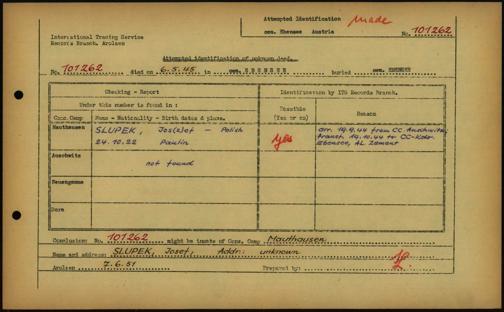 Attempted Identification made
International Tracing Service
Records Branch, Arolsen
com. Ebensee Austria
No. 101262
Attempted identification of unknown dead.
No. 101262 died on 6.5.45 in com. EBENSEE buried com. EBENSEE
Checking - Report
Identification by ITS Records Branch.
Under this number is found in :
Conc. Camp
Name - Nationality - Birth dates & place.
Possible
(Yes or no)
Reason
Mauthausen
SLUPEK, Jos(z)ef - Polish
24.10.22 Paulin
Yes
arr. 19.9.44 from CC Auschwitz,
transf. 19.10.44 to CC-Kdo.
Ebensee, AL Zement
Auschwitz
not found
Neuengamme
Dora
Conclusion: No. 101262 might be inmate of Conc. Camp Mauthausen
Name and address: SLUPEK, Josef, Addr: unknown
Arolsen 7.6.51 Prepared by: